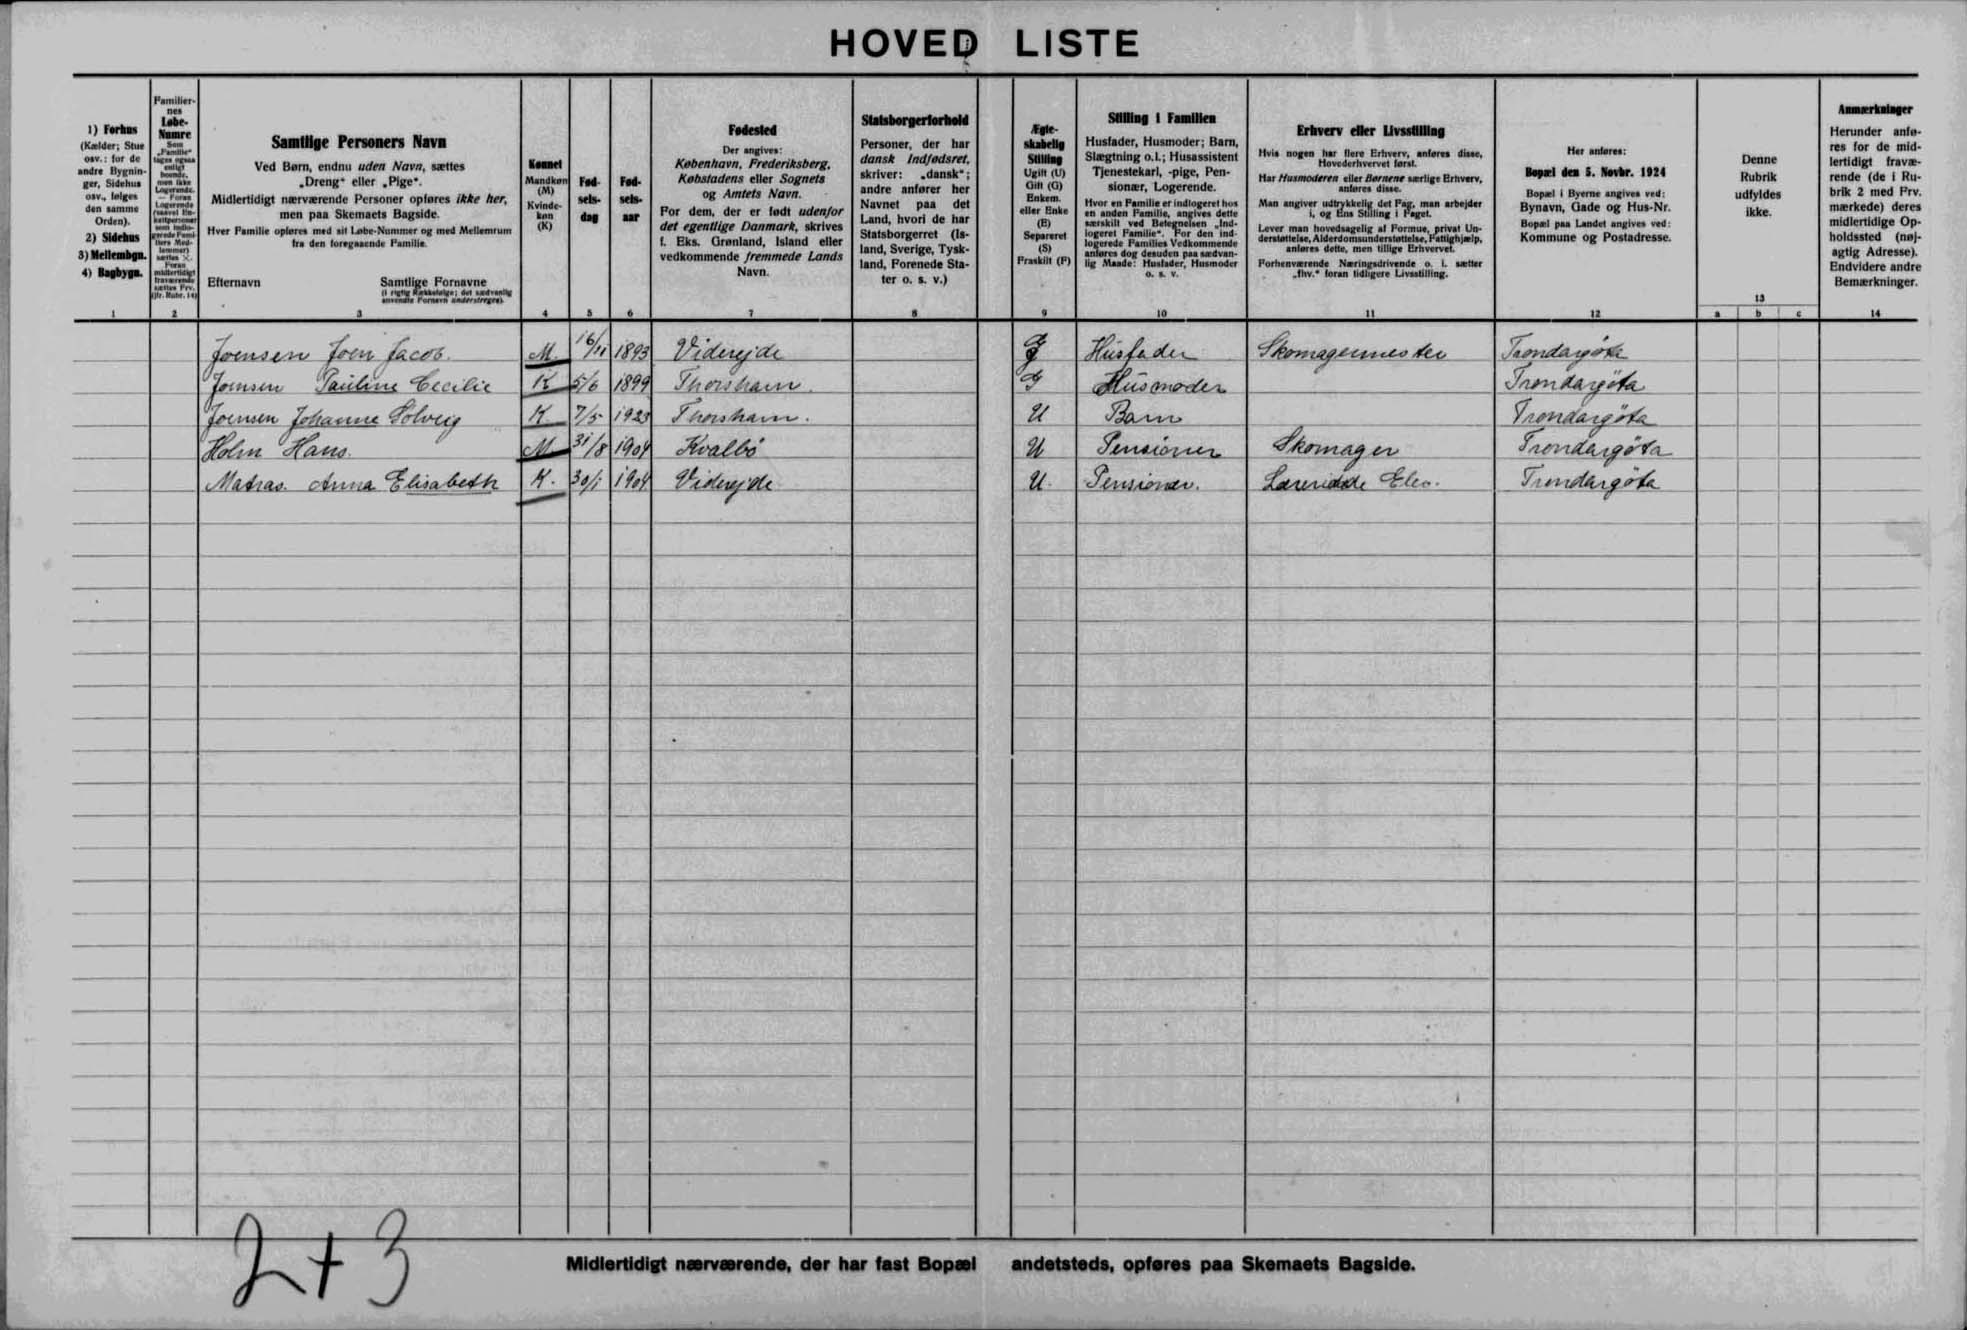 HOVED LISTE
1) Forhus
(Kælder; Stue
osv.: for de
andre Bygnin-
ger, Sidehus
osv., følges
den samme
Orden).
2) Sidehus
3) Mellembgn.
4) Bagbygn.
1
Familier-
nes
Løbe-
Numre
Som
„Familie“
tages ogsaa
enligt
boende,
men ikke
Logerende.
— Foran
Logerende
2
Samtlige Personers Navn
Ved Børn, endnu uden Navn, sættes
„Dreng“ eller „Pige“.
Midlertidigt nærværende Personer opføres ikke her,
men paa Skemaets Bagside.
Hver Familie opføres med sit Løbe-Nummer og med Mellemrum
fra den foregaaende Familie.
Efternavn Samtlige Fornavne
(i rigtig Rækkefølge; det sædvanlig
anvendte Fornavn understreges).
3
Kønnet
Mandkøn
(M)
Kvinde-
køn
(K)
4
Fød-
sels-
dag
5
Fød-
sels-
aar
6
Fødested
Der angives:
København, Frederiksberg,
Købstadens eller Sognets
og Amtets Navn.
For dem, der er født udenfor
det egentlige Danmark, skrives
f. Eks. Grønland, Island eller
vedkommende fremmede Lands
Navn.
7
Statsborgerforhold
Personer, der har
dansk Indfødsret,
skriver: „dansk“;
andre anfører her
Navnet paa det
Land, hvori de har
Statsborgerret (Is-
land, Sverige, Tysk-
land, Forenede Sta-
ter o. s. v.)
8
Ægte-
skabelig
Stilling
Ugift (U)
Gift (G)
Enkem.
eller Enke
(E)
Separeret
(S)
Fraskilt (F)
9
Stilling i Familien
Husfader, Husmoder; Barn,
Slægtning o.l.; Husassistent
Tjenestekarl, -pige, Pen-
sionær, Logerende.
Hvor en Familie er indlogeret hos
en anden Familie, angives dette
særskilt ved Betegnelsen „Ind-
logeret Familie“. For den ind-
logerede Families Vedkommende
anføres dog desuden paa sædvan-
lig Maade: Husfader, Husmoder
o. s. v.
10
Erhverv eller Livsstilling
Hvis nogen har flere Erhverv, anføres disse,
Hovederhvervet først.
Har Husmoderen eller Børnene særlige Erhverv,
anføres disse.
Man angiver udtrykkelig det Fag, man arbejder
i, og Ens Stilling i Faget.
Lever man hovedsagelig af Formue, privat Un-
derstøttelse, Alderdomsunderstøttelse, Fattighjælp,
anføres dette, men tillige Erhvervet.
Forhenværende Næringsdrivende o. l. sætter
„fhv.“ foran tidligere Livsstilling.
11
Her anføres:
Bopæl den 5. Novbr. 1924
Bopæl i Byerne angives ved:
Bynavn, Gade og Hus-Nr.
Bopæl paa Landet angives ved:
Kommune og Postadresse.
12
Denne
Rubrik
udfyldes
ikke.
13
a b c
Anmærkninger
Herunder anfø-
res for de mid-
lertidigt fravæ-
rende (de i Ru-
brik 2 med Frv.
mærkede) deres
midlertidige Op-
holdssted (nøj-
agtig Adresse).
Endvidere andre
Bemærkninger.
14
Joensen Joen Jacob. M. 16/11 1893 Viderejde G Husfader Skomagermester Trøndargöta
Joensen Pauline Cecilie K 5/6 1899 Thorshavn. G Husmoder Trøndargöta
Joensen Johanne Solveig K. 7/5 1923 Thorshavn. U Barn Trøndargöta
Holm Hans. M 31/8 1904 Kvalbö U Pensionær Skomager Trøndargöta
Matras. Anna Elisabeth K. 30/1 1904 Viderejde U. Pensionær. Elev. Trøndargöta
2+3
Midlertidigt nærværende, der har fast Bopæl andetsteds, opføres paa Skemaets Bagside.